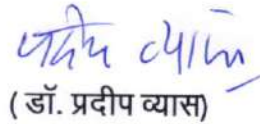 प्रदीप व्यास
( डॉ. प्रदीप व्यास)